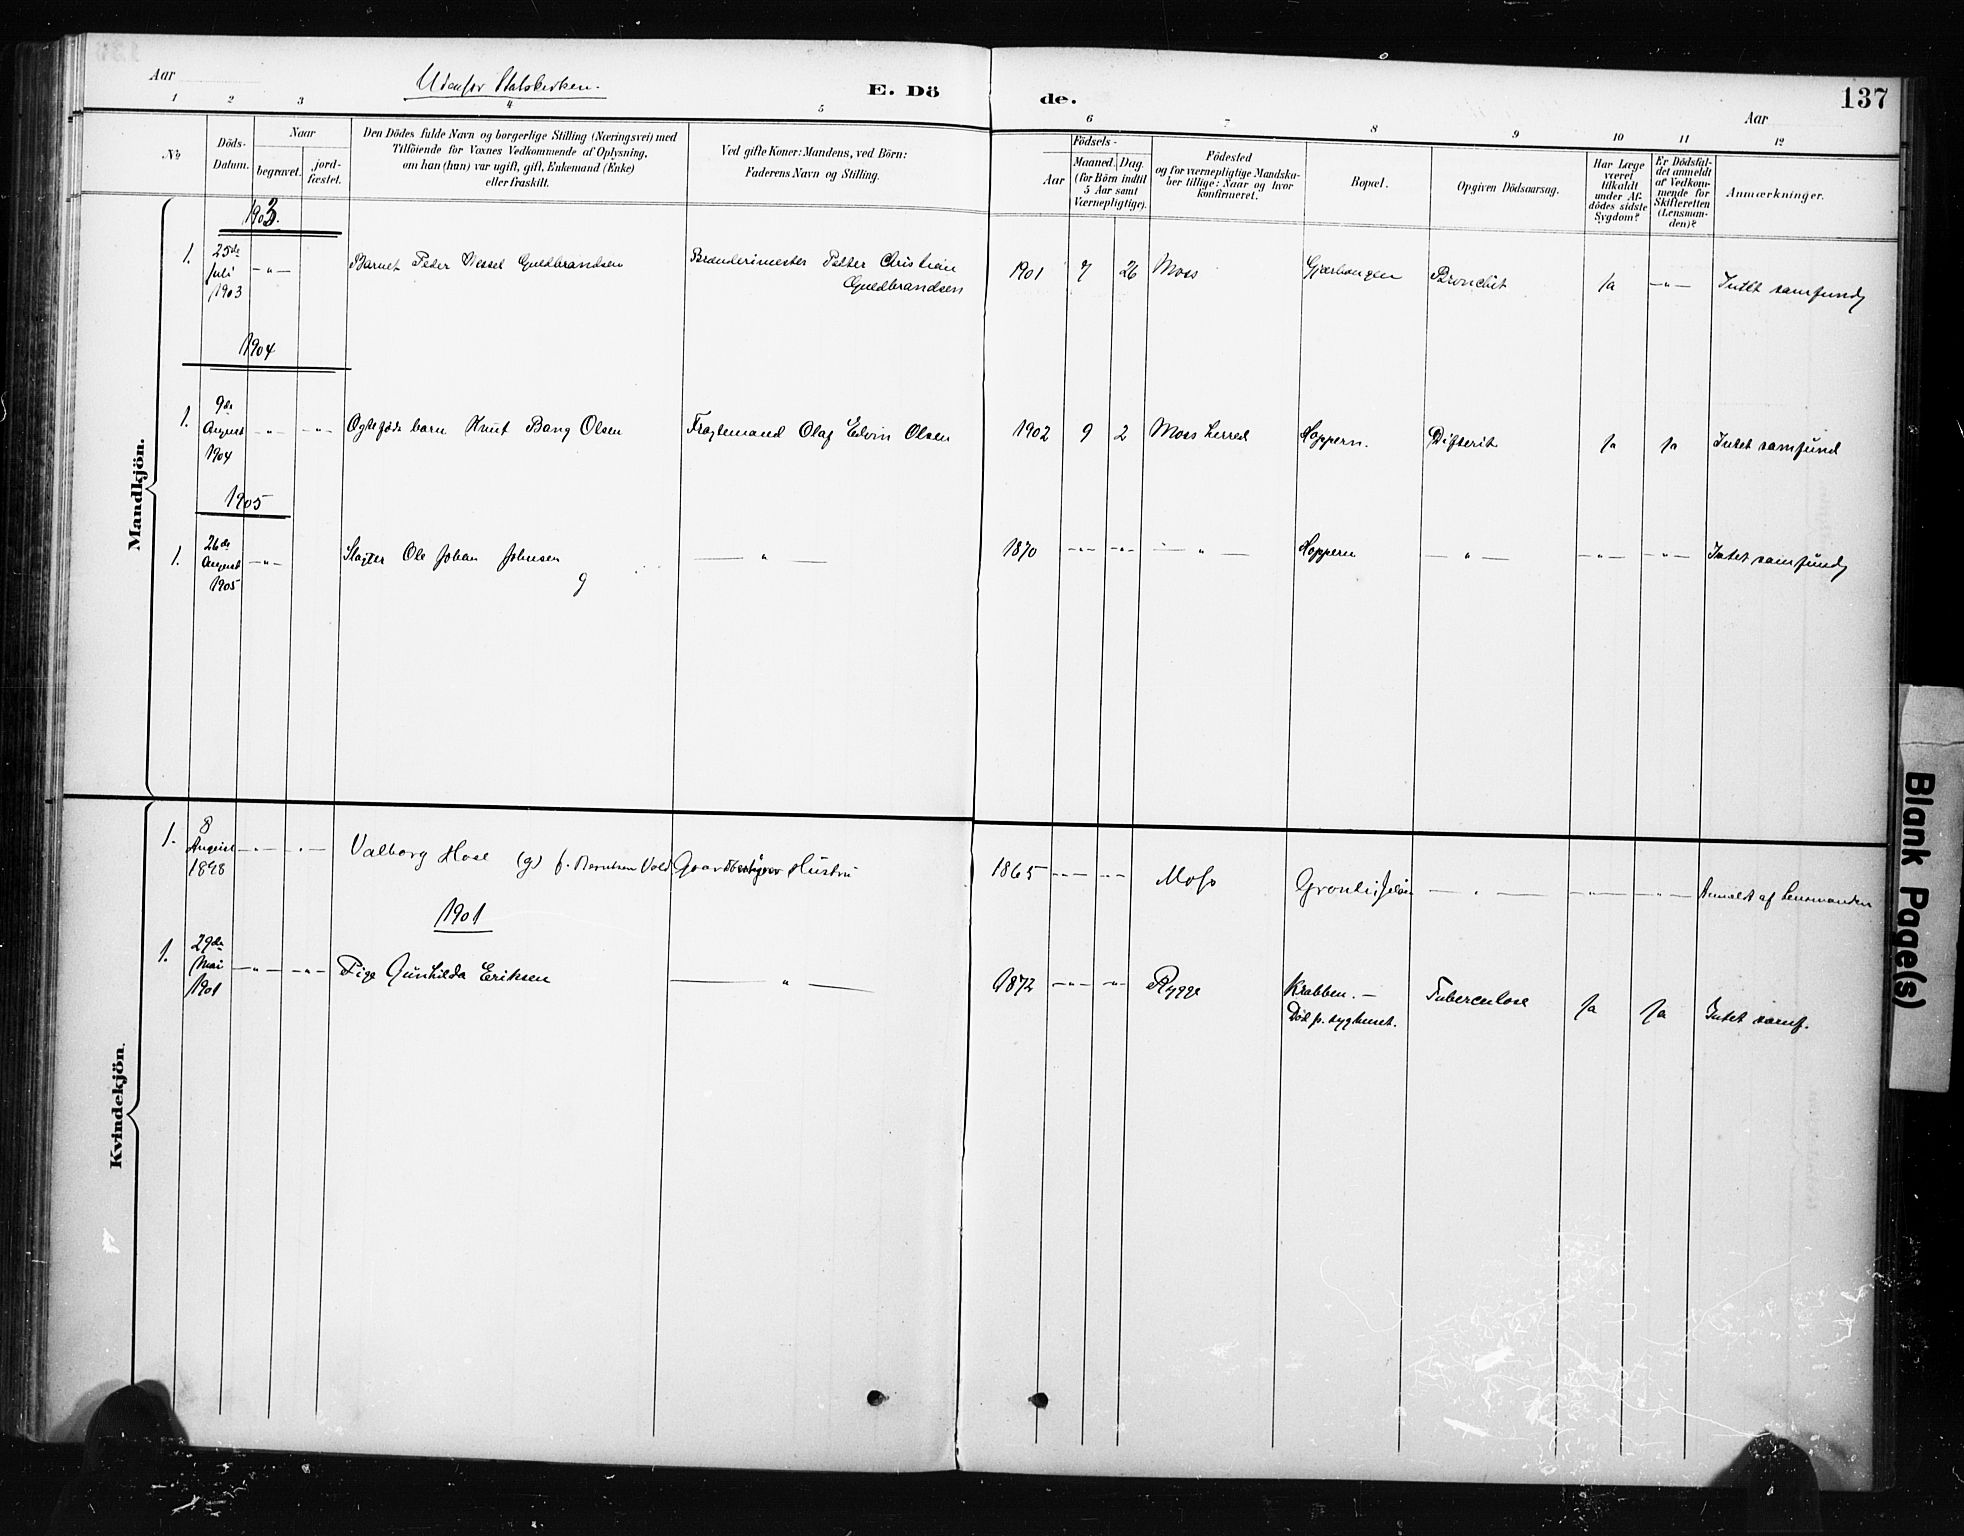 Aar
Udenfor Statskirken.
E. Dö
de.
Aar
137
1 2 3 4 5 6 7 8 9 10 11 12
No.
Döds-
Datum.
Naar
begravet.
jord-
fæstet.
Den Dödes fulde Navn og borgerlige Stilling (Næringsvei) med
Tilföiende for Voxnes Vedkommende af Oplysning,
om han (hun) var ugift, gift, Enkemand (Enke)
eller fraskilt.
Ved gifte Koner: Mandens, ved Börn:
Faderens Navn og Stilling.
Födsels-
Aar
Maaned.
Dag.
(for Börn indtil
5 Aar samt
Værnepligtige).
Födested
og for værnepligtige Mandska-
ber tillige: Naar og hvor
konfirmeret.
Bopæl.
Opgiven Dödsaarsag.
Har Læge
været
tilkaldt
under Af-
dödes sidste
Sygdom?
Er Dödsfal-
det anmeldt
af Vedkom-
mende for
Skifteretten
(Lensman-
den)?
Anmærkninger.
Mandkjön.
1903.
1. 25de Juli 1903 -"- Barnet Peder Wessel Guldbrandsen Brænderimester Petter Christian Guldbrandsen 1901 7 26 Moss Bronchit Ja -"- Intet samfund
1904
1. 9de August 1904 -"- -"- Ægtefødt barn Knut Bang Olsen Fragtemand Olaf Edvin Olsen 1902 9 2 Moss herred Hoppern. Difterit Ja Ja Intet samfund
1905
1. 26de August 1905 -"- Slagter Ole Johan Johnsen g -"- 1870 -"- -"- -"- Hoppern -"- -"- -"- Intet samfund
Kvindekjön.
1. 8 August 1898 -"- -"- Valborg Hose (g) f. Berntsen Vold Gaardbestyrer Hustru 1865 -"- -"- Moss Grønli, Jeløen -"- -"- -"- Anmeldt af Lensmanden
1901
1. 29de Mai 1901 -"- -"- Pige Gunhilda Eriksen -"- 1872 -"- -"- Rygge Krabben. - Død p. syghuset. Tuberculose Ja Ja Intet samf.
Blank Page(s)